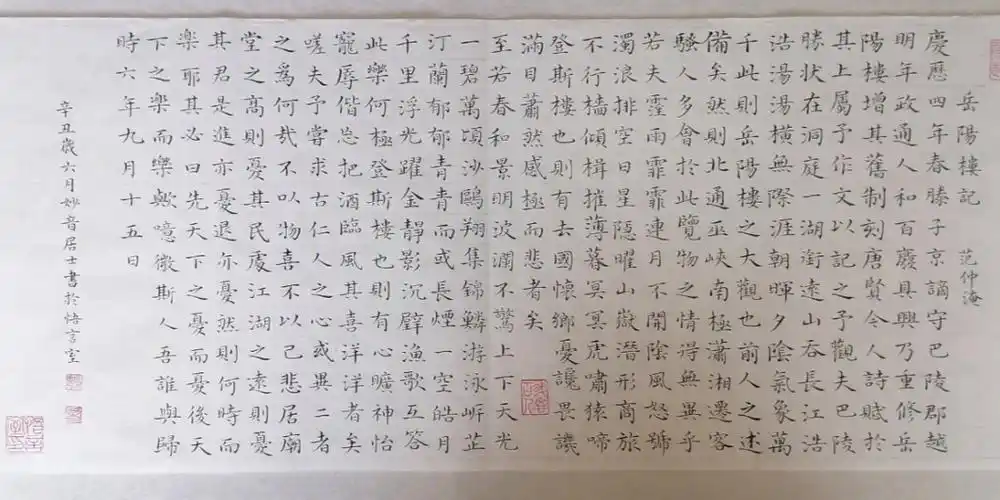 岳陽樓記 范仲淹
慶曆四年春滕子京謫守巴陵郡越
明年政通人和百廢具興乃重修岳
陽樓增其舊制刻唐賢今人詩賦於
其上屬予作文以記之予觀夫巴陵
勝狀在洞庭一湖銜遠山吞長江浩
浩湯湯橫無際涯朝暉夕陰氣象萬
千此則岳陽樓之大觀也前人之述
備矣然則北通巫峽南極瀟湘遷客
騷人多會於此覽物之情得無異乎
若夫霪雨霏霏連月不開陰風怒號
濁浪排空日星隱曜山嶽潛形商旅
不行檣傾楫摧薄暮冥冥虎嘯猿啼
登斯樓也則有去國懷鄉憂讒畏譏
滿目蕭然感極而悲者矣
至若春和景明波瀾不驚上下天光
一碧萬頃沙鷗翔集錦鱗游泳岸芷
汀蘭郁郁青青而或長煙一空皓月
千里浮光躍金靜影沉璧漁歌互答
此樂何極登斯樓也則有心曠神怡
寵辱偕忘把酒臨風其喜洋洋者矣
嗟夫予嘗求古仁人之心或異二者
之為何哉不以物喜不以己悲居廟
堂之高則憂其民處江湖之遠則憂
其君是進亦憂退亦憂然則何時而
樂耶其必曰先天下之憂而憂後天
下之樂而樂歟噫微斯人吾誰與歸
時六年九月十五日
辛丑歲六月妙音居士書於悟言室